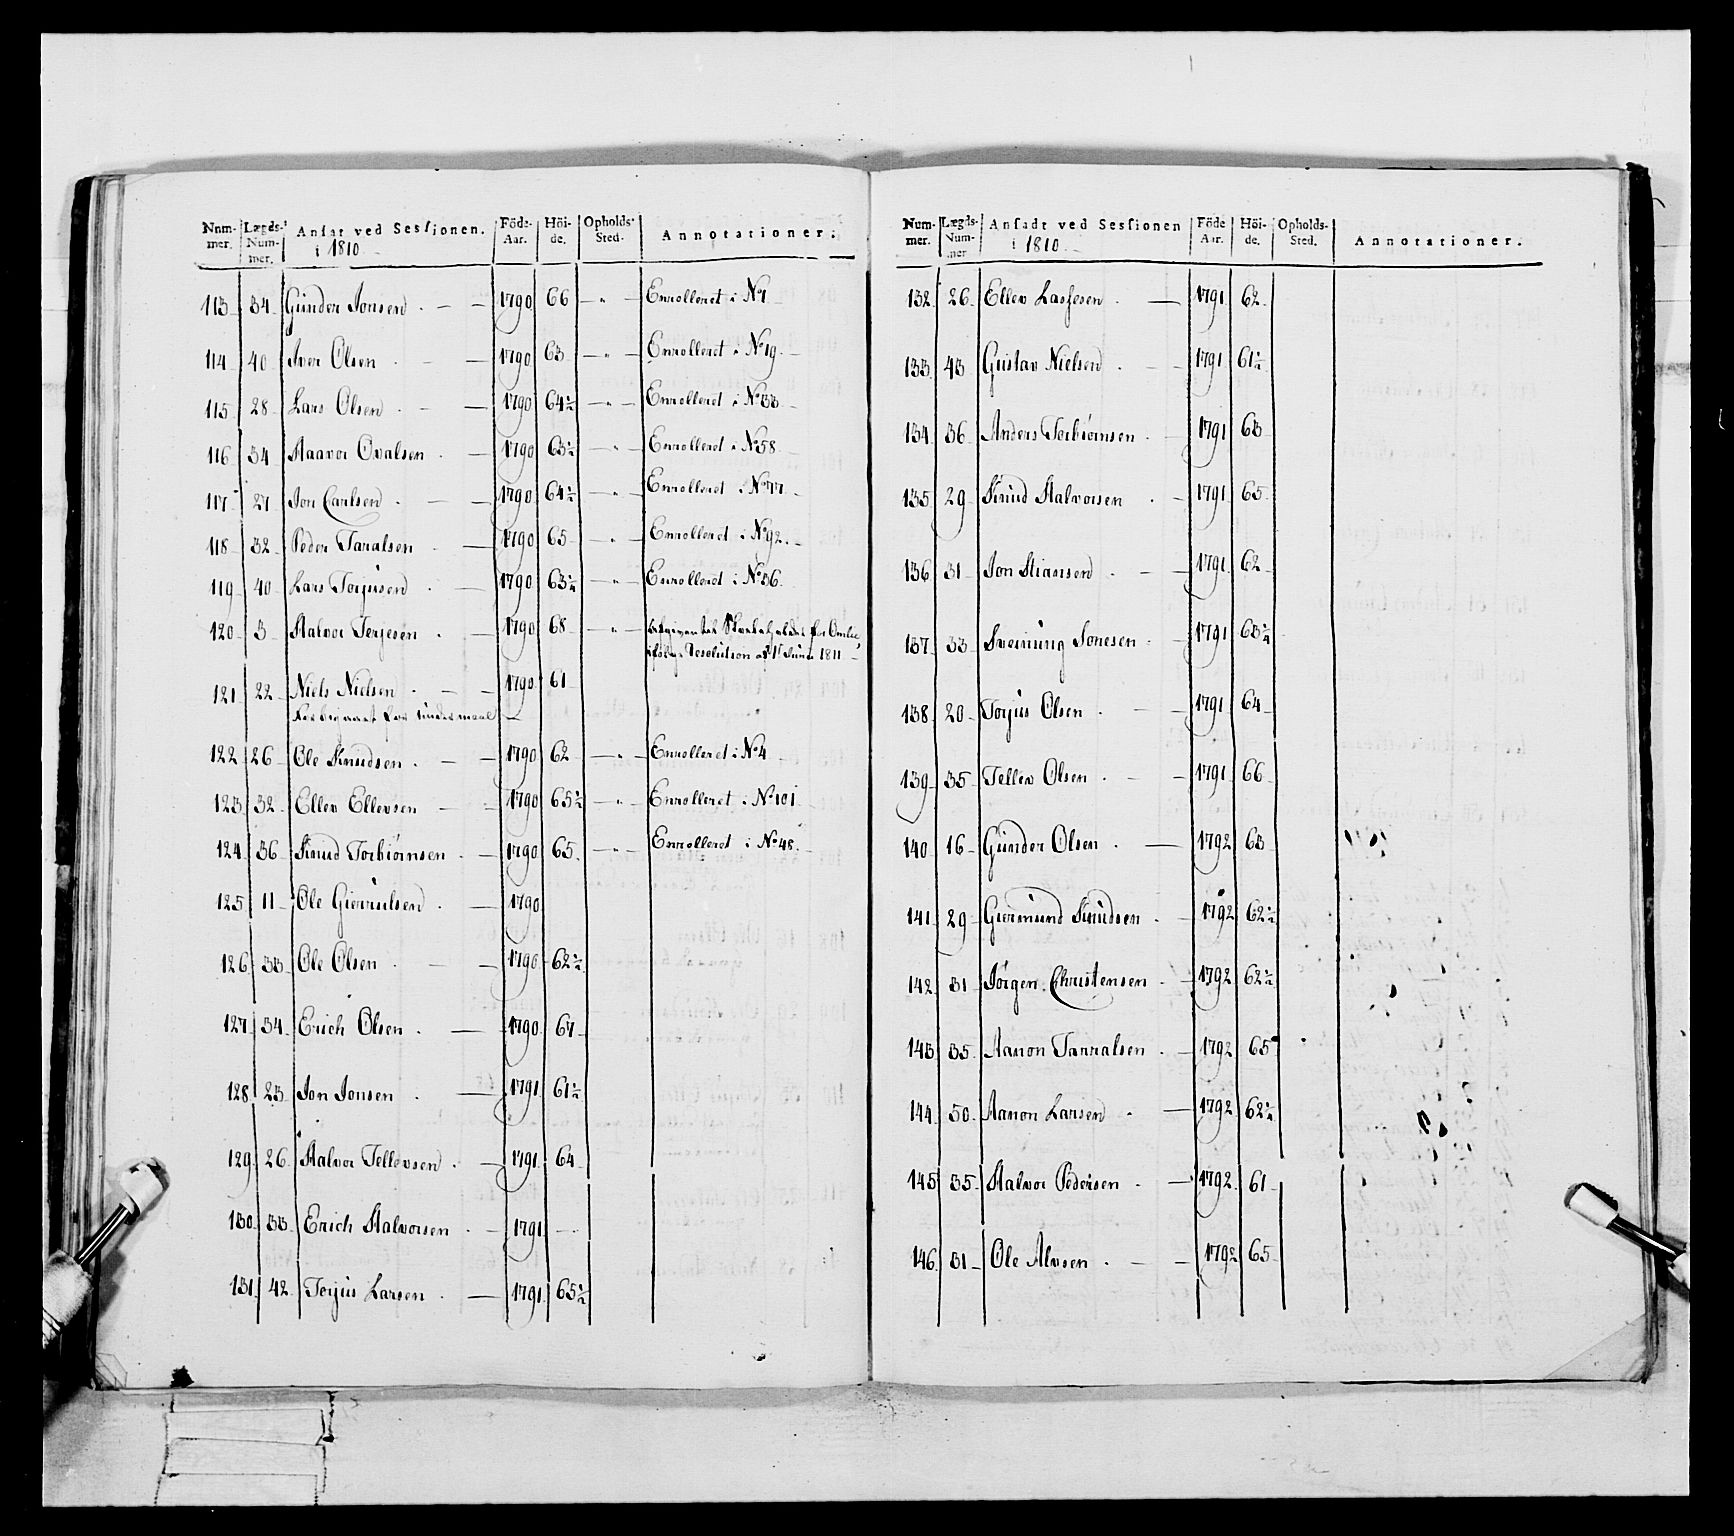 Num-mer. Lægds-Num-mer. Ansat ved Sessionen. i 1810 Föde Aar. Höi-de. Opholds-Sted. Annotationer.
113 34 Gunder Jonsen 1790 66 Enrolleret i No 1
114 40 Iver Olsen 1790 63 Enrolleret i No 19
115 28 Lars Olsen 1790 64½ Enrolleret i No 33
116 34 Haavor Ovalsen 1790 63½ Enrolleret i No 58
117 27 Jon Carlsen 1790 64½ Enrolleret i No 77
118 32 Peder Taralsen 1790 65 Enrolleret i No 92
119 40 Lars Torjusen 1790 63½ Enrolleret i No 36
120 3 Halvor Terjesen 1790 68
ifølge Resolution af 1 Juni 1811
121 22 Niels Nielsen 1790 61
for undermaal
122 26 Ole Knudsen 1790 62 Enrolleret i No 4
123 32 Ellev Ellevsen 1790 65½ Enrolleret i No 101
124 36 Knud Torbiørnsen 1790 65 Enrolleret i No 48
125 11 Ole 1790
126 33 Ole Olsen 1790 62½
127 34 Erich Olsen 1790 67
128 23 Jon Jonsen 1791 61½
129 26 Halvor Tellevsen 1791 64
130 33 Erich Halvorsen 1791
131 42 Terjus Larsen 1791 65½
Num-mer. Lægds-Num-mer Ansadt ved Sessionen i 1810 Föde Aar. Höi-de. Opholds-Sted. Annotationer.
132 26 Ellev Lassesen 1791 62
133 43 Gustav Nielsen 1791 61½
134 36 Anders Terbiørnsen 1791 63
135 29 Knud Halvorsen 1791 65
136 31 Jon Stiansen 1791 62
137 33 Sveinung Jonesen 1791 63½
138 20 Torjus Olsen 1791 64
139 35 Tellev Olsen 1791 66
140 16 Gunder Olsen 1792 63
141 29 Giermund Knudsen 1792 62½
142 31 Jörgen Christensen 1792 62½
143 35 Aanon Tarralsen 1792 65
144 50 Aanon Larsen 1792 62½
145 35 Halvor Pedersen 1792 61
146 31 Ole Alvsen 1792 65